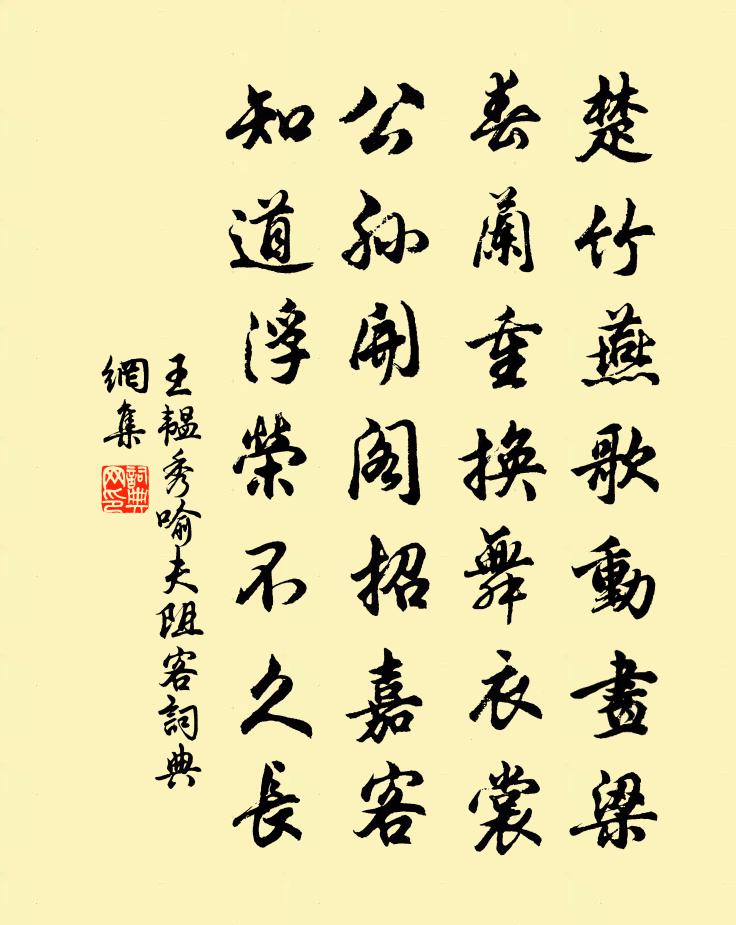 楚竹燕歌動畫梁
春蘭重換舞衣裳
公孙開阁招嘉客
知道浮榮不久長
王韞秀喻夫阻客詞典
網集
詞典網印